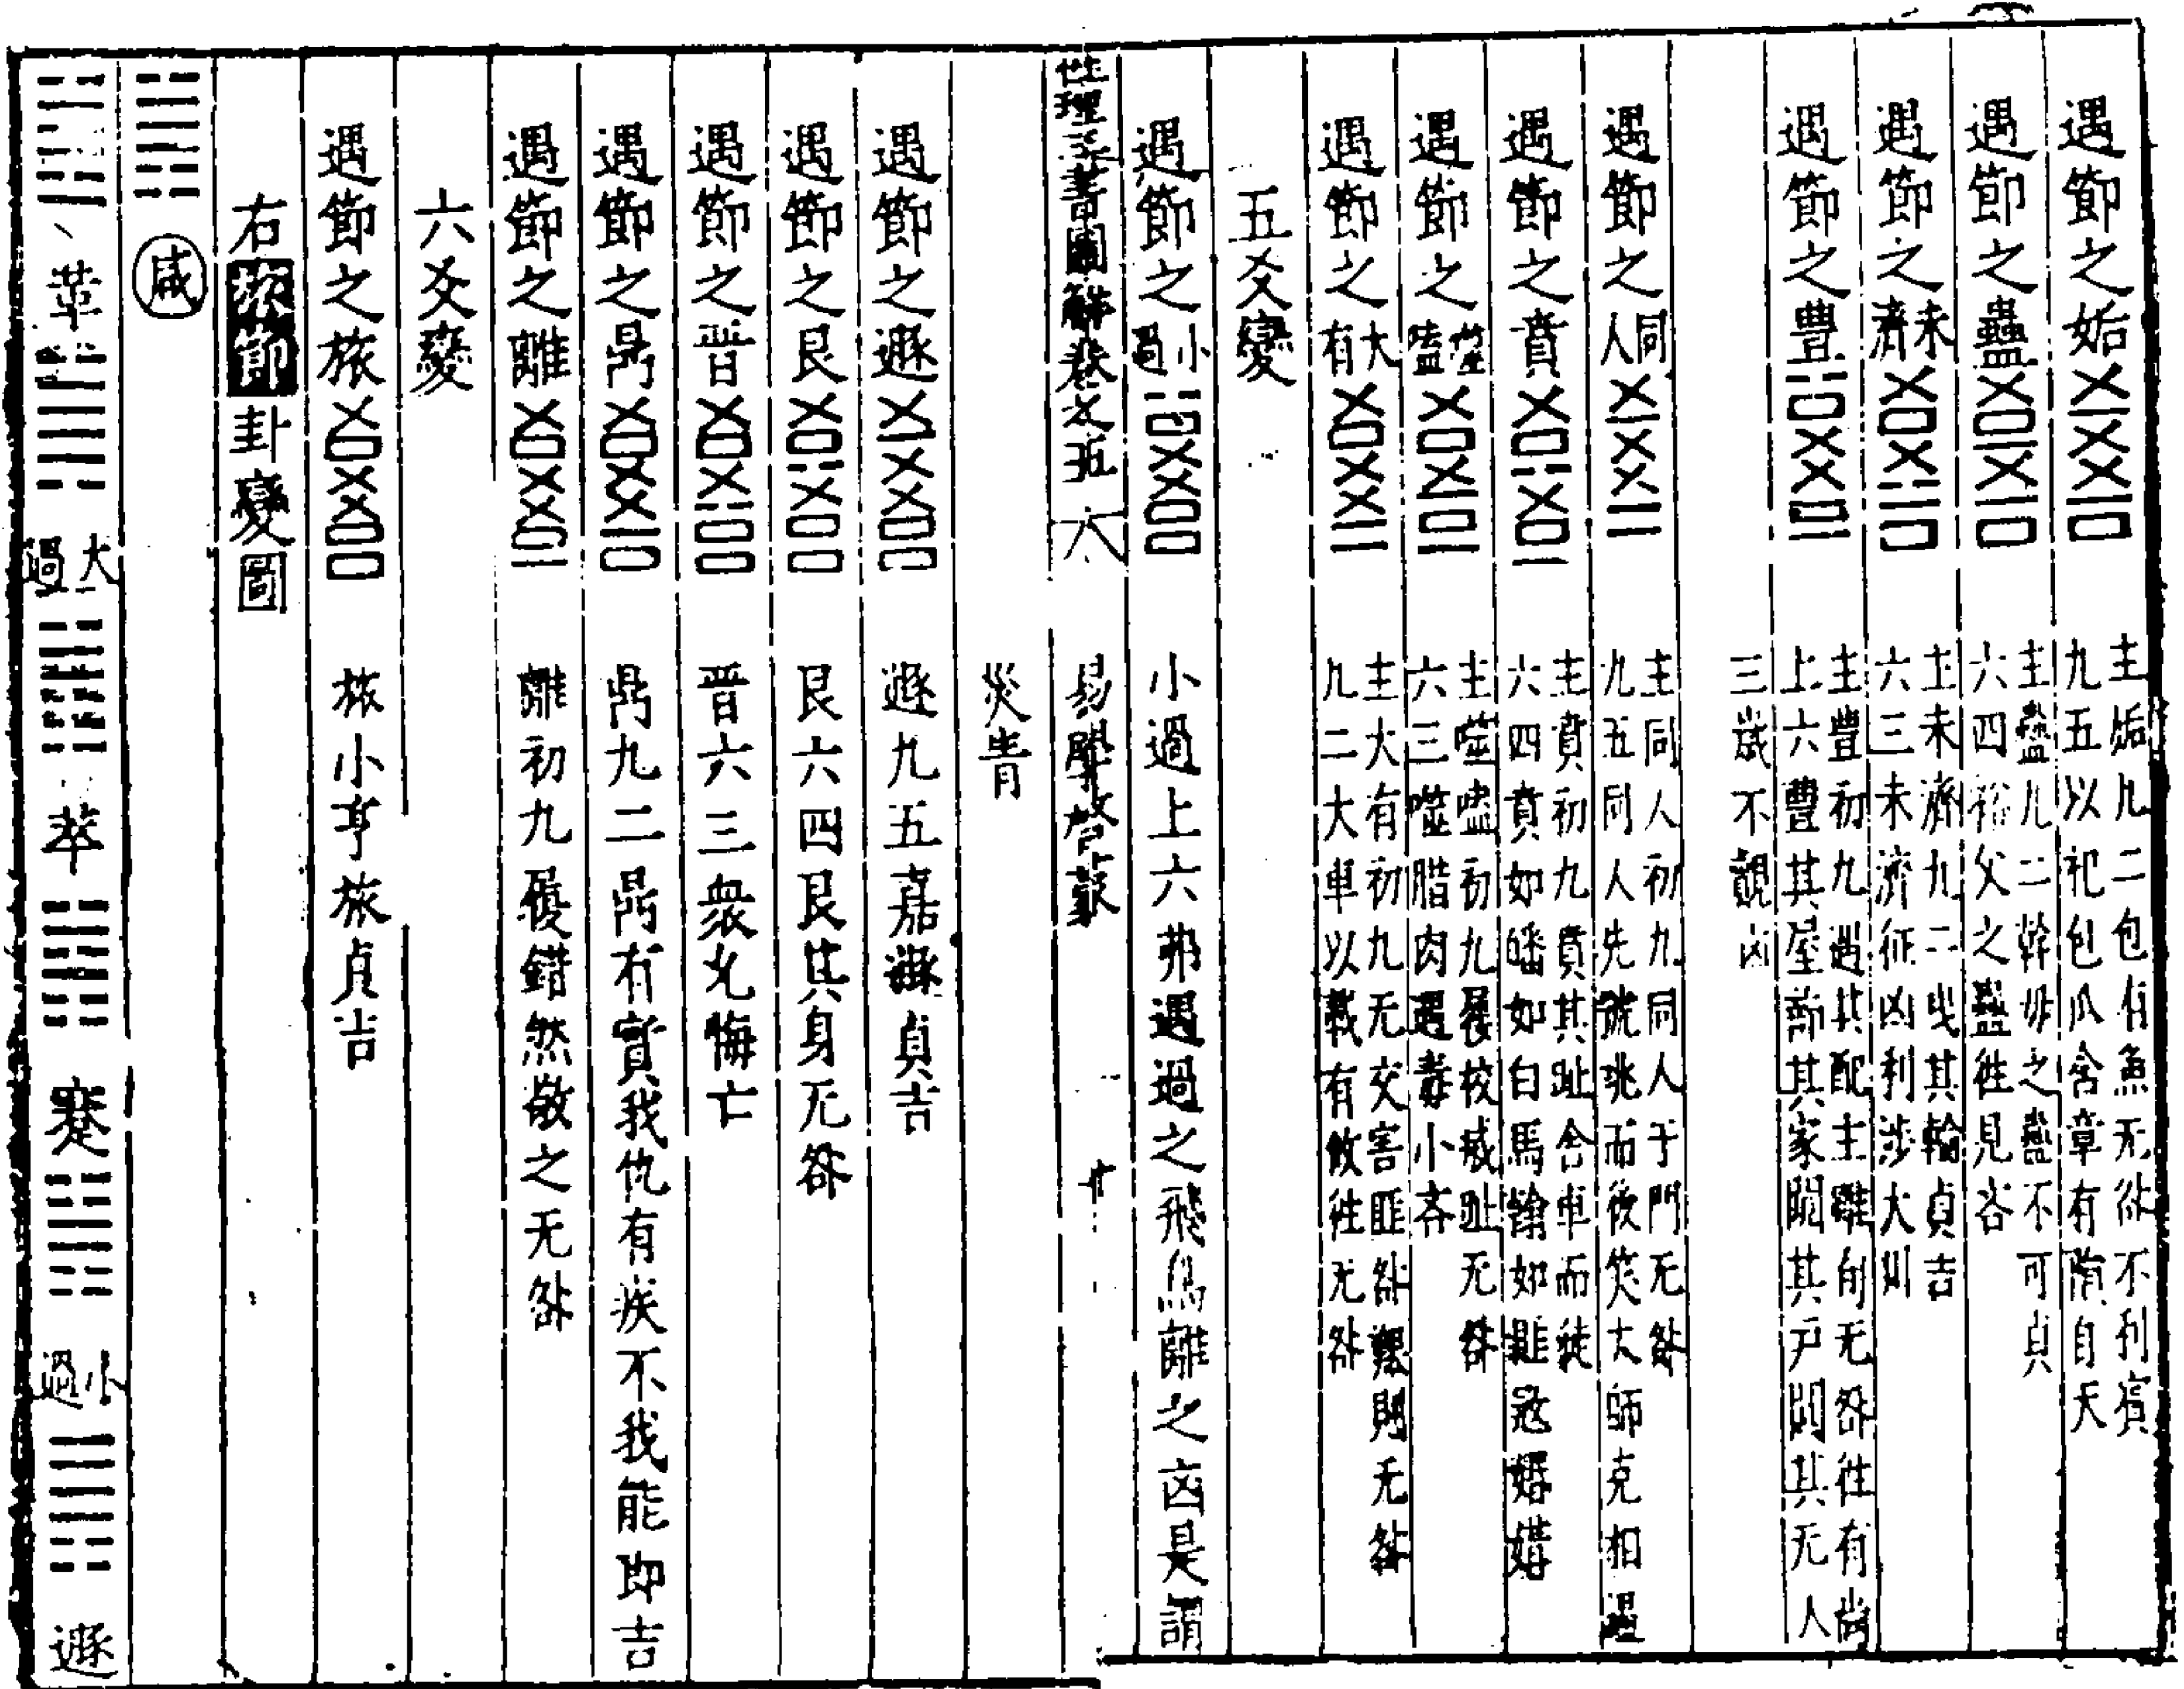 遇節之姤 主姤九二包有魚无咎不利賓
九五以杞包瓜含章有隕自天
遇節之蠱 主蠱九二幹母之蠱不可貞
六四裕父之蠱往見吝
遇節之未濟 主未濟九二曳其輪貞吉
六三未濟征凶利涉大川
遇節之豐 主豐初九遇其配主雖旬无咎往有尚
上六豐其屋蔀其家闚其戶闃其无人
三歲不覿凶
遇節之同人 主同人初九同人于門无咎
九五同人先號咷而後笑大師克相遇
遇節之賁 主賁初九賁其趾舍車而徒
六四賁如皤如白馬翰如匪寇婚媾
遇節之噬嗑 主噬嗑初九屨校滅趾无咎
六三噬腊肉遇毒小吝
遇節之大有 主大有初九无交害匪咎艱則无咎
九二大車以載有攸往无咎
五爻變
遇節之小過 小過上六弗遇過之飛鳥離之凶是謂
性理三書圖解卷之五 六 易學啓蒙 廿
災眚
遇節之遯 遯九五嘉遯貞吉
遇節之艮 艮六四艮其身无咎
遇節之晉 晉六三衆允悔亡
遇節之鼎 鼎九二鼎有實我仇有疾不我能即吉
遇節之離 離初九履錯然敬之无咎
六爻變
遇節之旅 旅小亨旅貞吉
右 節卦變圖
咸
革 大過 萃 蹇 小過 遯